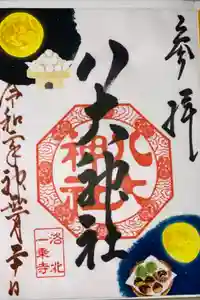 参拝
八大神社
八大神社
令和二年神無月二十日
洛北
一乗寺